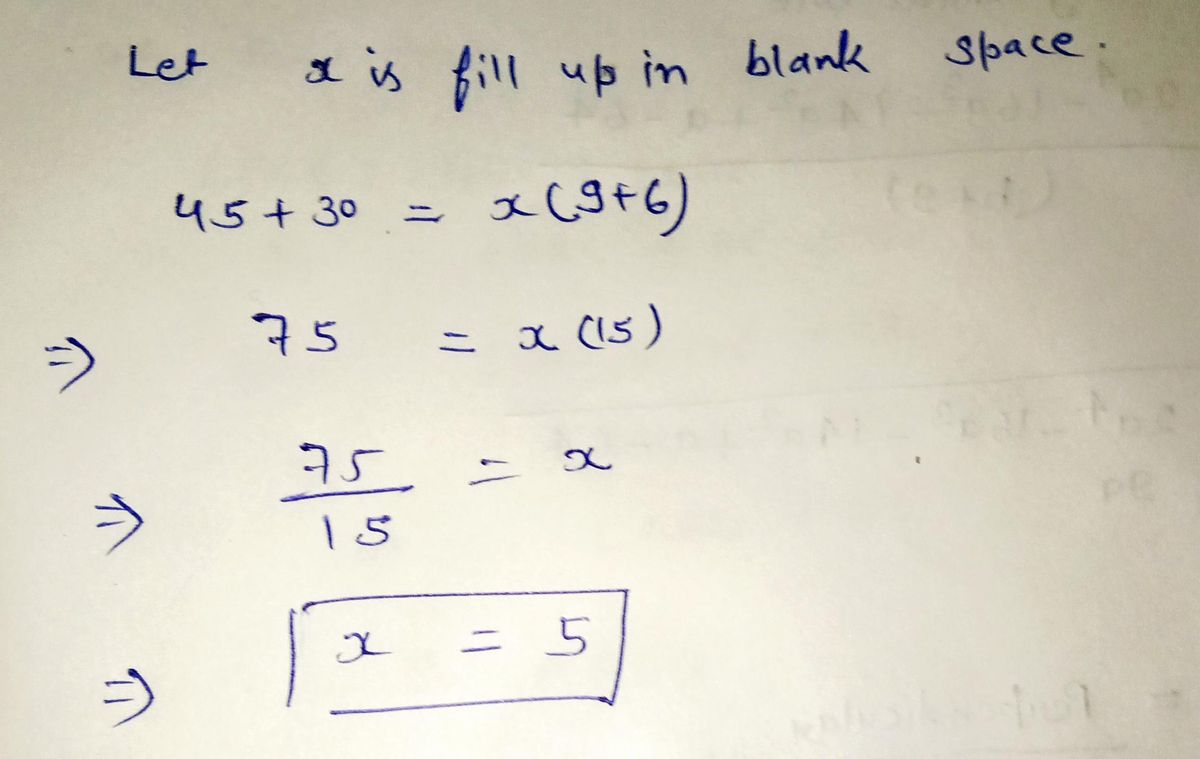 Let x is fill up in blank space.
45 + 30 = x (9+6)
⇒ 75 = x (15)
⇒ 75/15 = x
⇒ x = 5